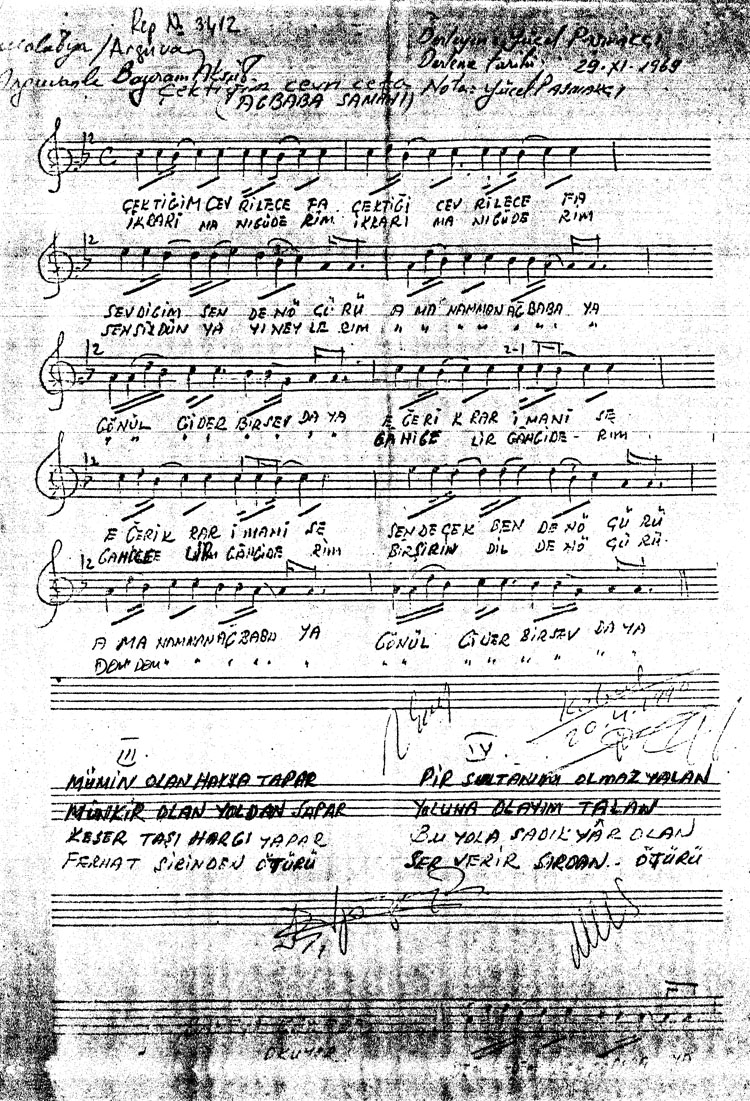 Rep № 3412
Malatya / Arguvan
Derleyen: Yücel PAŞMAKÇI
Arguvanlı Bayram
Derleme Tarihi: 29-XI-1969
Çektiğim cevri cefa
Nota: Yücel PAŞMAKÇI
(AĞBABA SAMAHI)
ÇEKTİĞİM CEV RİLECE FA ÇEKTİĞİ CEV RİLECE FA
İKRARİ MA NIGÜDE RİM İKRARİ MA NIGÜDE RİM
SEVDİGİM SEN DE NÖ GÜ RÜ A MA NAMMAN AĞBABA YA
SENSİZDÜN YA YI NEY LE RİM " " " " " " "
2-1
GÖNÜL GİDER BİRSEV DA YA E ĞERİ K RAR İ MANİ SE
" " " " " " " GAHİGE LİR GAHGİDE - RİM
E ĞERİK RAR İ MANİ SE SENDEÇEK BEN DE NÖ GÜ RÜ
GAHİGE LİR GAHGİDE RİM BİRŞİRİN DİL DE NÖ GÜ RÜ
A MA NAMMANAĞBABA YA GÖNÜL GİDER BİRSEV DA YA
DEM" DEM" " " " " " " " " " " "
20.4.1990
III
MÜMİN OLAN HAKKA TAPAR
MÜNKİR OLAN YOLDAN SAPAR
KESER TAŞI HARGI YAPAR
FERHAT ŞİRİNDEN ÖTÜRÜ
IV.
PİR SULTANIM OLMAZ YALAN
YOLUNA OLAYIM TALAN
BU YOLA SADIK YÂR OLAN
SER VERİR SIRDAN - ÖTÜRÜ
OKUYAN
YA